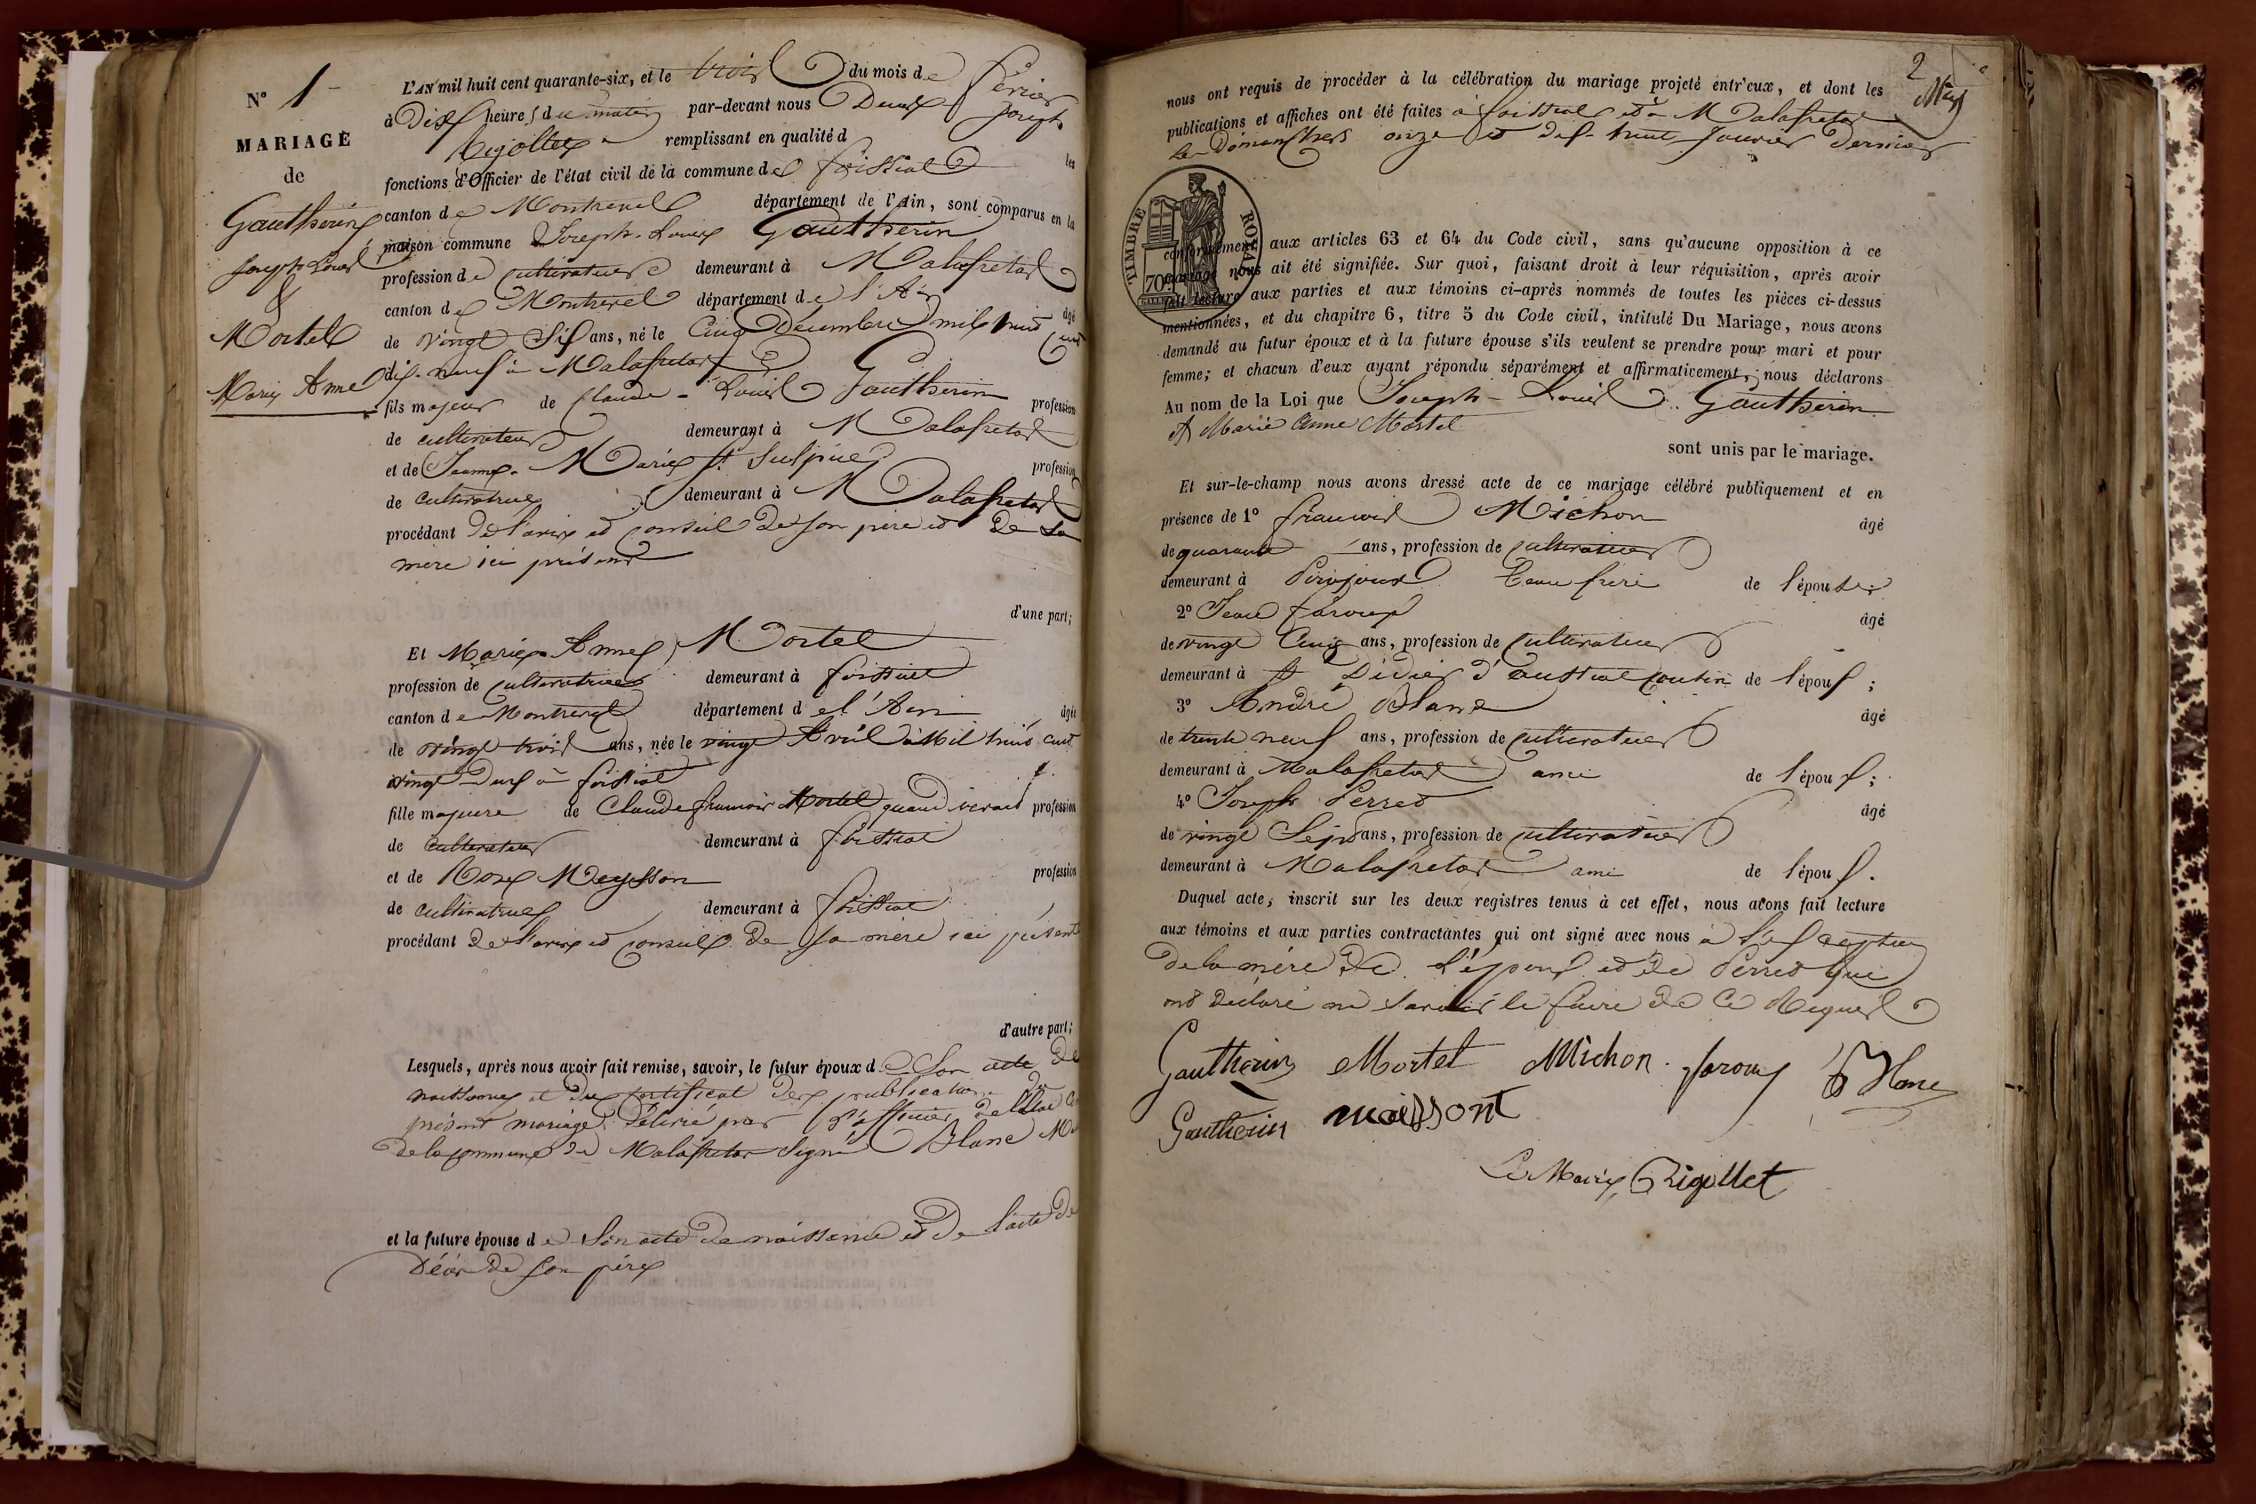 N° 1
MARIAGE
de
Gautherin
Joseph Louis
&
Mortel
Marie Anne
L'AN mil huit cent quarante-six, et le trois du mois de février
à Dix heures du matin par-devant nous Joseph
Rigollet remplissant en qualité d les
fonctions d'Officier de l'état civil de la commune de foissiat
canton de Montrevel département de l'Ain, sont comparus en la
maison commune Joseph-Louis Gautherin
profession de cultivateur demeurant à Malafretaz
canton de Montrevel département de l'Ain âgé
de vingt Six ans, né le Cinq Décembre mil huit cent
dix-neuf à Malafretaz
fils majeur de Claude-Louis Gautherin profession
de cultivateur demeurant à Malafretaz
et de Jeanne-Marie St Sulpice profession
de cultivatrice demeurant à Malafretaz
procédant de l'avis et conseil de son père et de sa
mère ici présents
d'une part;
Et Marie Anne Mortel
profession de cultivatrice demeurant à foissiat
canton de Montrevel département de l'Ain âgée
de vingt trois ans, née le vingt Avril mil huit cent
vingt Deux à foissiat
fille majeure de Claude françois Mortel quand vivait profession
de cultivateur demeurant à foissiat
et de Rose Meysson profession
de cultivatrice demeurant à foissiat
procédant de l'avis et conseil de sa mère ici présente
d'autre part;
Lesquels, après nous avoir fait remise, savoir, le futur époux de Son acte de
naissance et du certificat des publications du
présent mariage délivré par l'officier de l'état
de la commune de Malafretaz Signé Blanc
et la future épouse de Son acte de naissance et de l'acte de
Décès de son père
2
nous ont requis de procéder à la célébration du mariage projeté entr'eux, et dont les
publications et affiches ont été faites à foissiat et à Malafretaz
les Dimanches onze et dix-huit Janvier Dernier
TIMBRE ROYAL
70c
conformément aux articles 63 et 64 du Code civil, sans qu'aucune opposition à ce
mariage nous ait été signifiée. Sur quoi, faisant droit à leur réquisition, après avoir
fait lecture aux parties et aux témoins ci-après nommés de toutes les pièces ci-dessus
mentionnées, et du chapitre 6, titre 5 du Code civil, intitulé Du Mariage, nous avons
demandé au futur époux et à la future épouse s'ils veulent se prendre pour mari et pour
femme; et chacun d'eux ayant répondu séparément et affirmativement, nous déclarons
Au nom de la Loi que Joseph-Louis Gautherin
et Marie Anne Mortel
sont unis par le mariage.
Et sur-le-champ nous avons dressé acte de ce mariage célébré publiquement et en
présence de 1° françois Michon âgé
de quarante ans, profession de cultivateur
demeurant à Pirajoux beau frère de l'épouse
2° Jean âgé
de vingt Cinq ans, profession de cultivateur
demeurant à St Didier d'aussiat cousin de l'époux;
3° André Blanc âgé
de trente neuf ans, profession de cultivateur
demeurant à Malafretaz ami de l'époux;
4° Joseph Perret âgé
de vingt Sept ans, profession de cultivateur
demeurant à Malafretaz ami de l'époux.
Duquel acte, inscrit sur les deux registres tenus à cet effet, nous avons fait lecture
aux témoins et aux parties contractantes qui ont signé avec nous à l'exception
de la mère de l'époux et de Perret qui
ont déclaré ne savoir le faire de ce Requis
Gautherin Mortel Michon Blanc
Gautherin maissont
Le Maire Rigollet